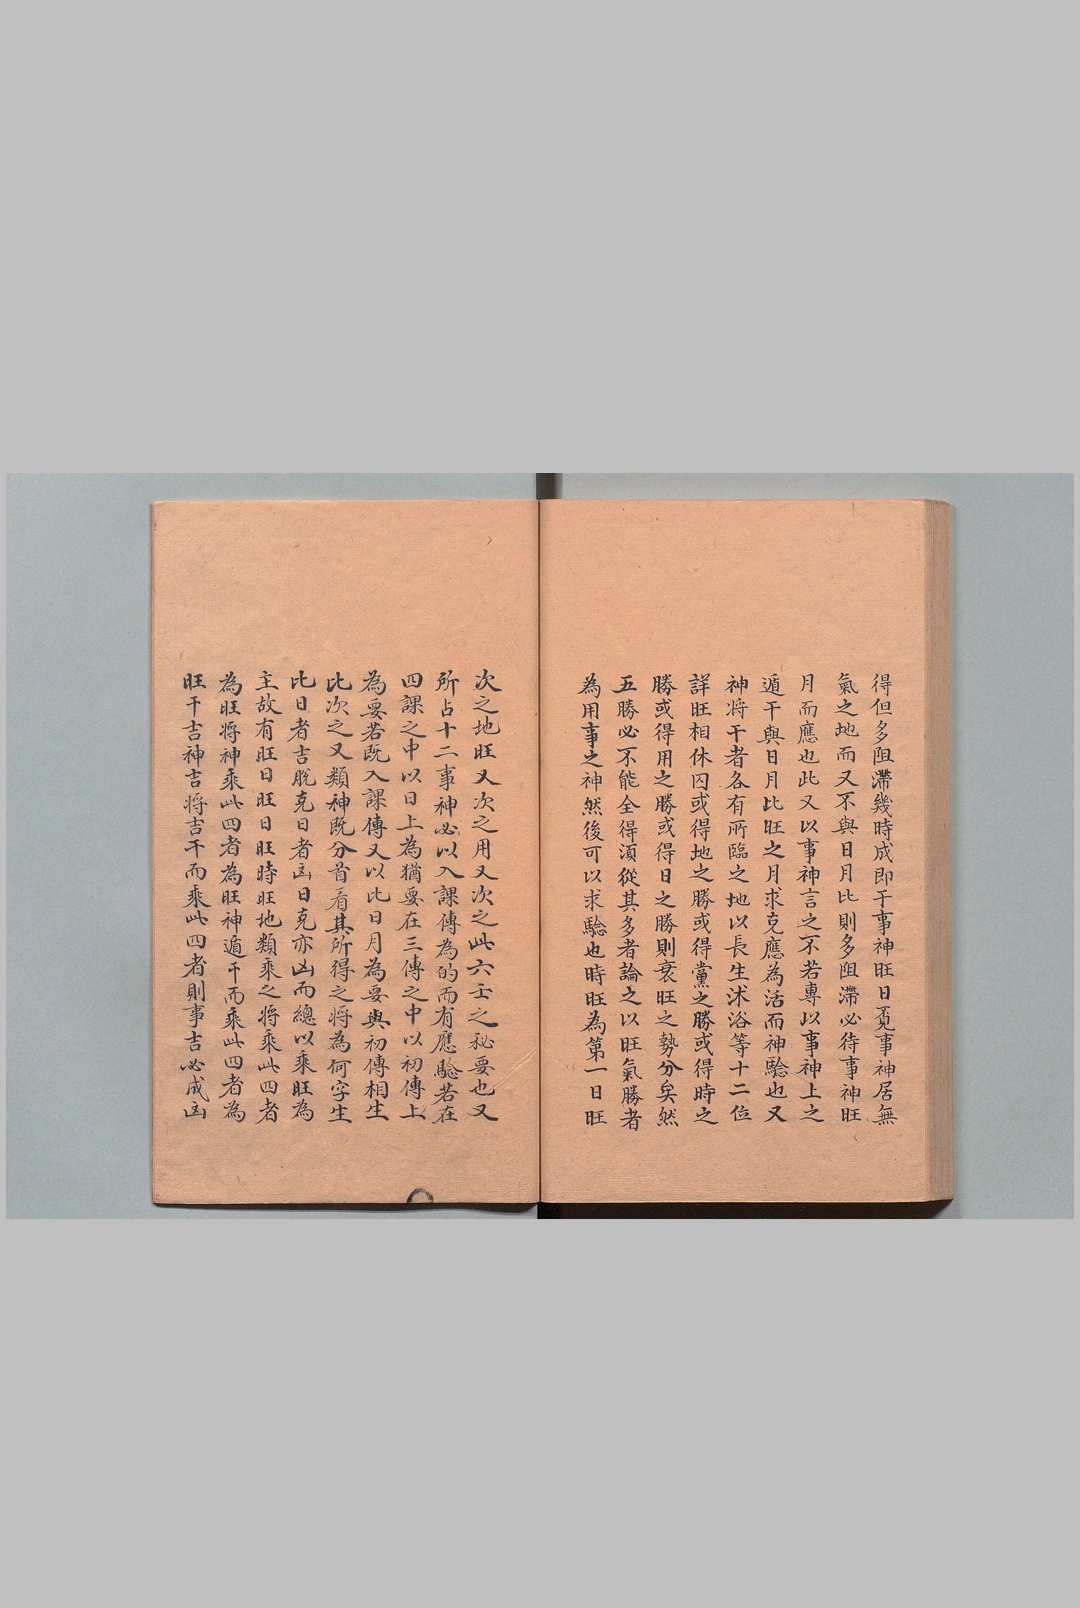 得但多阻滯幾時成即干事神旺日覔事神居無
氣之地而又不與日月比則多阻滯必待事神旺
月而應也此又以事神言之不若專以事神上之
遁干與日月比旺之月求克應為活而神驗也又
神将干者各有所臨之地以長生沭浴等十二位
詳旺相休囚或得地之勝或得黨之勝或得時之
勝或得用之勝或得日之勝則衰旺之勢分矣然
五勝必不能全得須從其多者論之以旺氣勝者
為用事之神然後可以求驗也時旺為第一日旺
次之地旺又次之用又次之此六壬之秘要也又
所占十二事神必以入課傳為的而有應驗若在
四課之中以日上為猶要在三傳之中以初傳上
為要若既入課傳又以比日月為要與初傳相生
比次之又類神既分首看其所得之将為何字生
比日者吉脫克日者凶日克亦凶而總以乘旺為
主故有旺日旺日旺時旺地類乘之将乘此四者
為旺将神乘此四者為旺神遁干而乘此四者為
旺干吉神吉将吉干而乘此四者則事吉必成凶